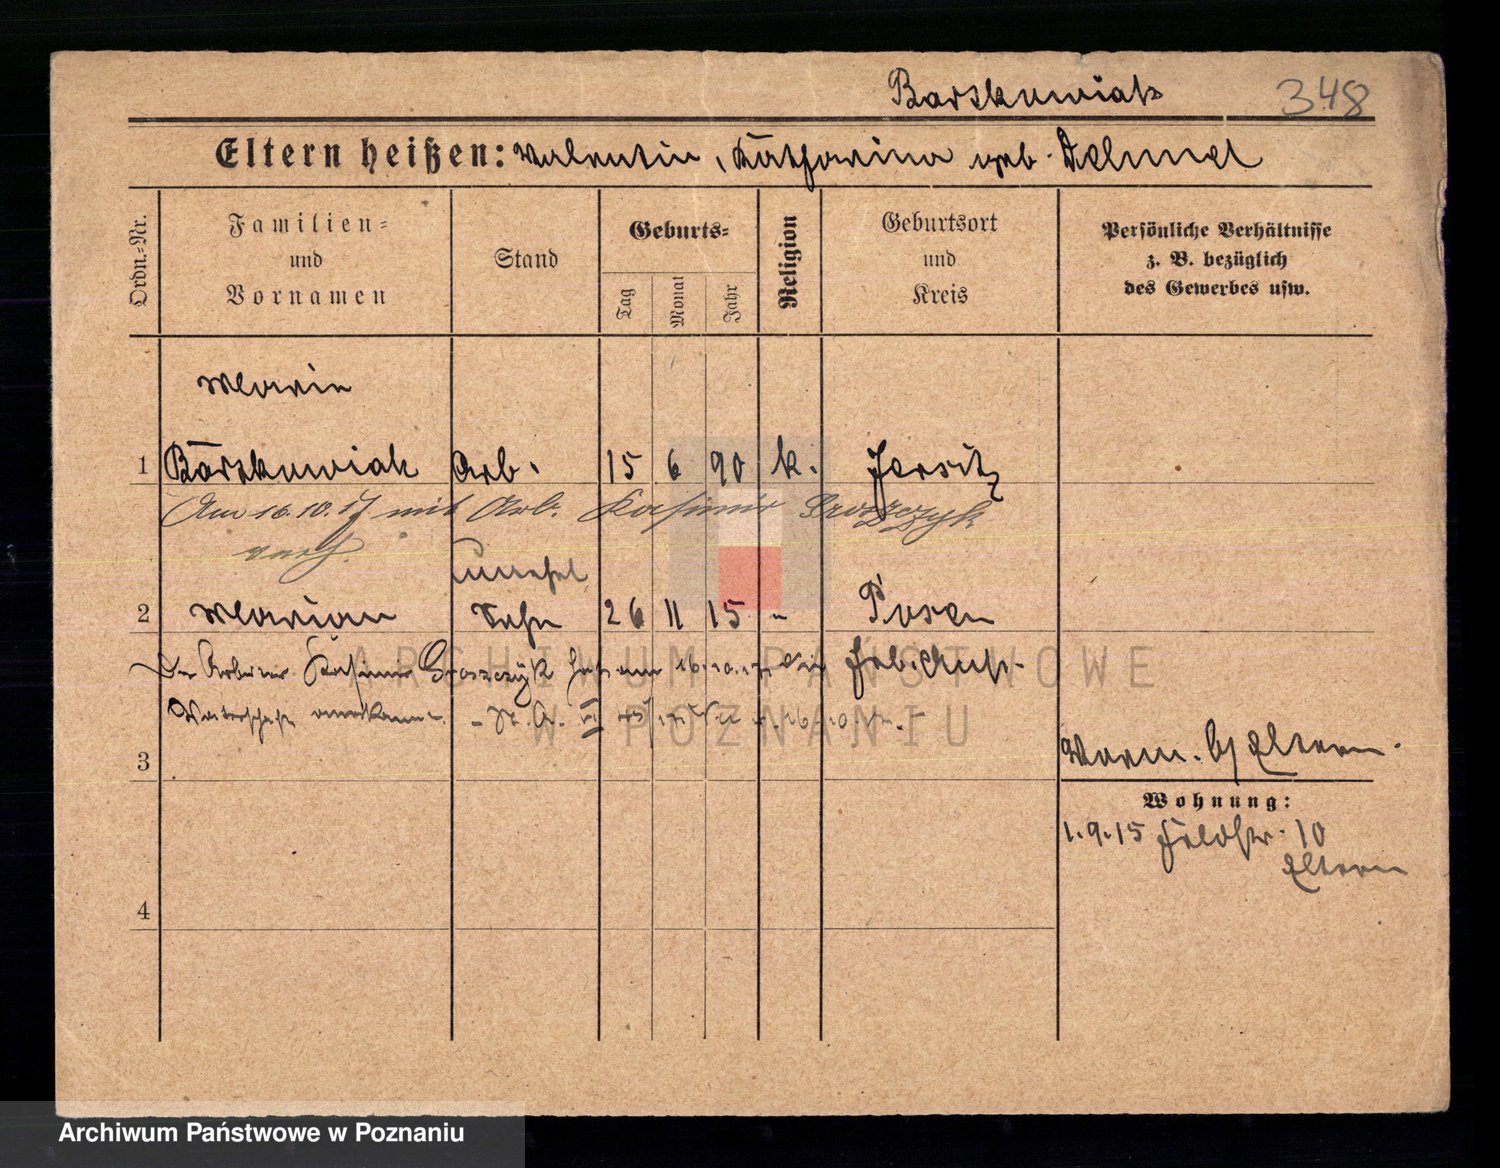 Barskuwiak 348
Eltern heißen: Valentin, Katharina geb. Dehmel
Ordn.-Nr.
Familien-
und
Vornamen
Stand
Geburts-
Tag
Monat
Jahr
Religion
Geburtsort
und
Kreis
Persönliche Verhältnisse
z. B. bezüglich
des Gewerbes usw.
Marie
1 Barskuwiak Arb. 15 6 90 k. Jersitz
Am 16.10.17 mit Arb. Kasimir Groszczyk
verh.
unehel
2 Marian Sohn 26 11 15 " Posen
Der Arbeiter Kasimir Groszczyk hat am 16.10.17 die
Vaterschaft anerkannt. - St. A.
3
Vorm. b/ Eltern.
Wohnung:
1.9.15 Feldstr. 10
Eltern
4
ARCHIWUM PAŃSTWOWE
W POZNANIU
Archiwum Państwowe w Poznaniu